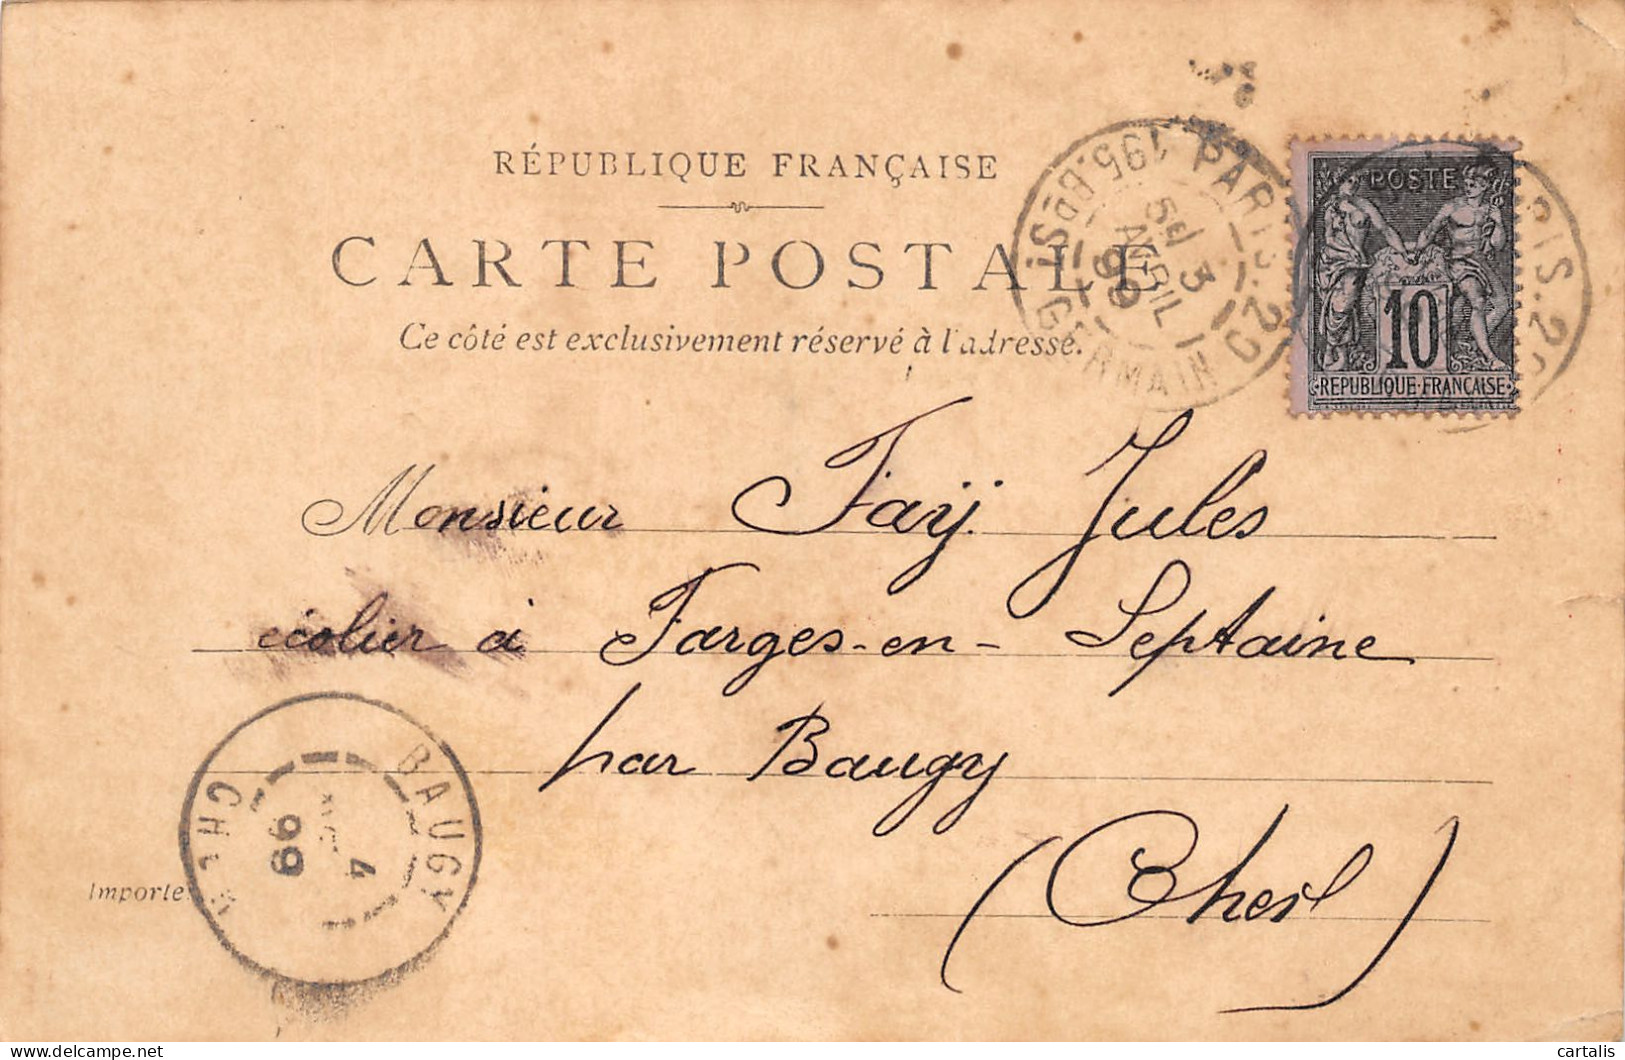 RÉPUBLIQUE FRANÇAISE
CARTE POSTALE
Ce côté est exclusivement réservé à l'adresse.
PARIS. 20
195. Bᴰ Sᵗ GERMAIN
5ᴱ
3
AVRIL
99
POSTE
10
REPUBLIQUE FRANCAISE
RIS. 2
Monsieur Faÿ Jules
écolier à Farges-en-Septaine
par Baugy
(Cher)
BAUGY
CHER
4
99
Importé
cartalis